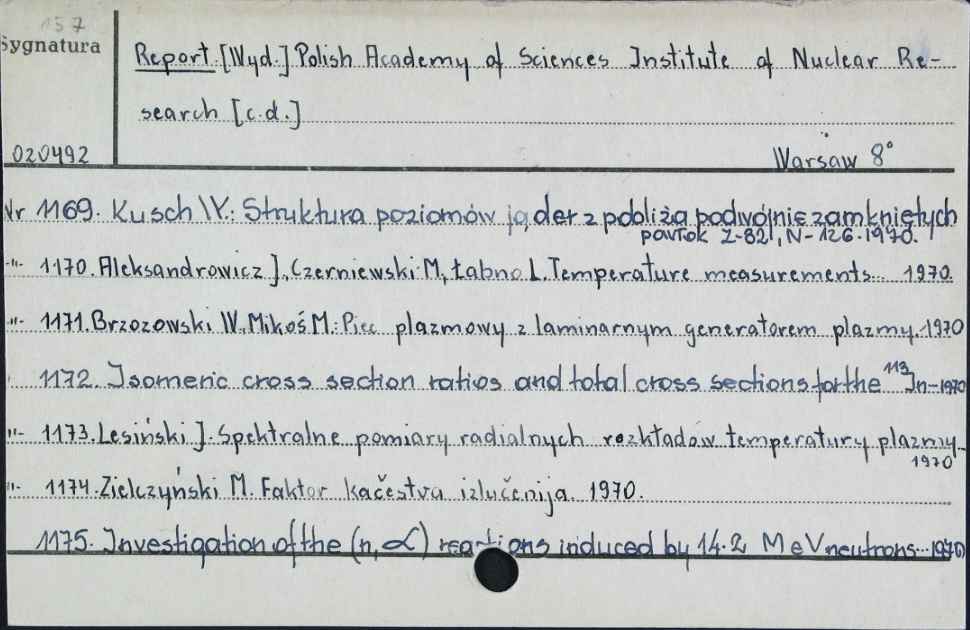 157
Sygnatura
Report [Wyd.] Polish Academy of Sciences Institute of Nuclear Re-
search [c.d.]
020492
Warsaw 8°
Nr 1169. Kusch W.: Struktura poziomów jąder z pobliża podwójnie zamkniętych
powłok Z-82, N-126. 1970.
-"- 1170. Aleksandrowicz J., Czerniewski M., Łabno L. Temperature measurements... 1970.
-"- 1171. Brzozowski W., Mikoś M.: Piec plazmowy z laminarnym generatorem plazmy. 1970
1172. Isomeric cross section ratios and total cross sections for the ¹¹³In- 1970
-"- 1173. Lesiński J. Spektralne pomiary radialnych rozkładów temperatury plazmy.
1970
-"- 1174. Zielczyński M. Faktor kačestva izlučenija. 1970.
1175. Investigation of the (n, α) reactions induced by 14.2 MeV neutrons... 1970